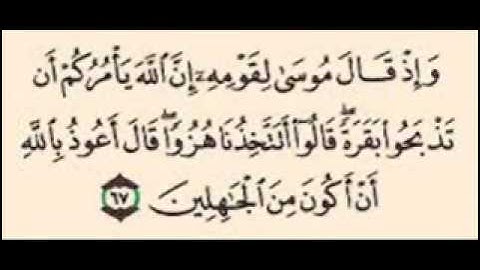 وَإِذْ قَالَ مُوسَىٰ لِقَوْمِهِۦٓ إِنَّ ٱللَّهَ يَأْمُرُكُمْ أَن
تَذْبَحُوا۟ بَقَرَةًۖ قَالُوٓا۟ أَتَتَّخِذُنَا هُزُوًاۖ قَالَ أَعُوذُ بِٱللَّهِ
أَنْ أَكُونَ مِنَ ٱلْجَٰهِلِينَ ٦٧